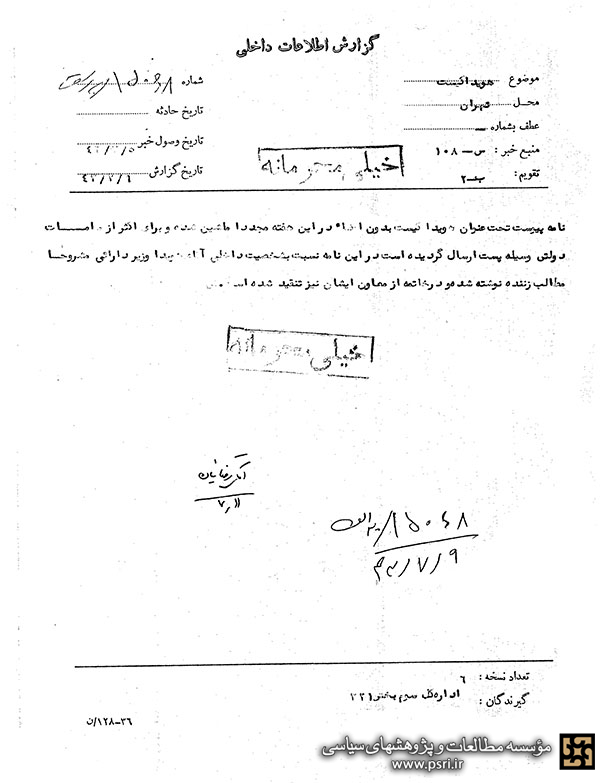 گزارش اطلاعات داخلی
موضوع هویدا کیست
محل تهران
عطف بشماره —
منبع خبر : س – ۱۰۸
تقویم : ب – ۲
شماره ۱۵۰۶۸
تاریخ حادثه
تاریخ وصول خبر
تاریخ گزارش
خیلی محرمانه
نامه پیوست تحت عنوان هویدا کیست بدون امضاء در این هفته مجددا ماشین شده و برای اکثر از مقامات
دولتی وسیله پست ارسال گردیده است در این نامه نسبت بشخصیت داخلی آقای هویدا وزیر دارائی مشروحا
مطالب زننده نوشته شده و در خاتمه از معاون ایشان نیز تنقید شده است
خیلی محرمانه
۱۵۰۶۸/
۴۳/۷/۹
تعداد نسخه : ۶
گیرندگان : اداره کل سوم بخش ۳۲۱
۳۶–۱۲۸/ن
مؤسسه مطالعات و پژوهشهای سیاسی
www.psri.ir